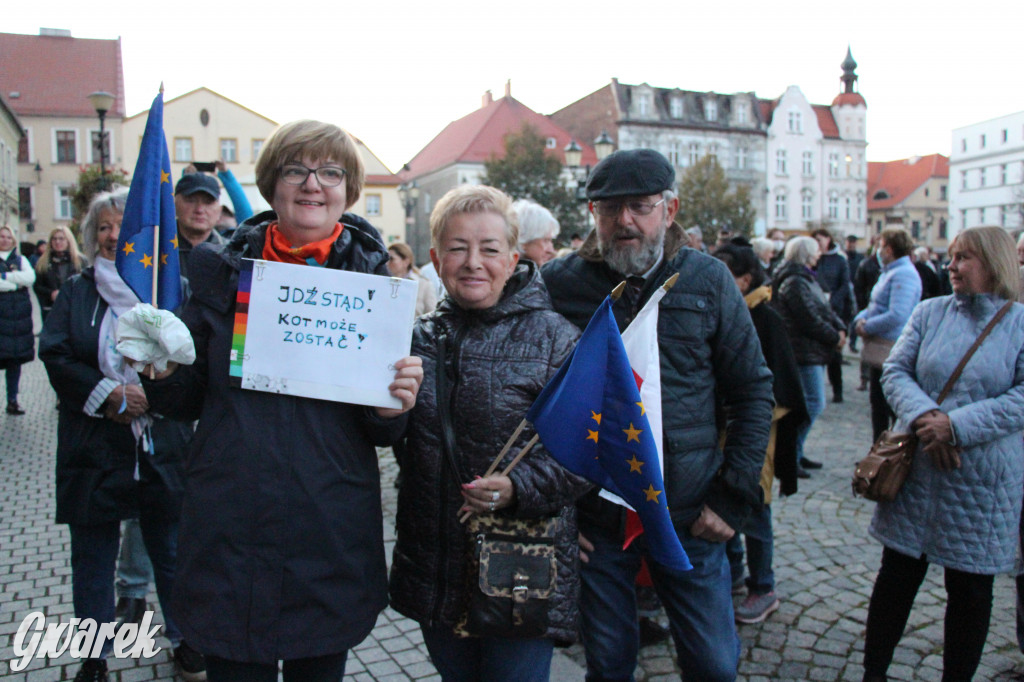 IDŹ STĄD!
KOT MOŻE
ZOSTAĆ!
Gwarek